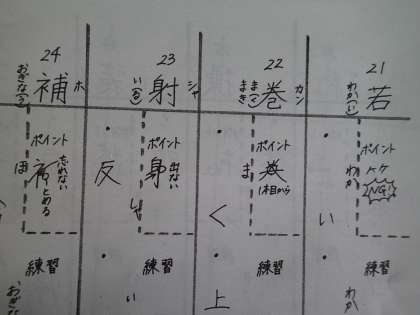 21
若
わか(い)
ポイント
トケ
NG!
わか
い
練習
わか
22
巻
カン
ま(く)
まき
ポイント
巻
1本目から
ま
く
練習
上
23
射
シャ
い(る)
ポイント
射
出ない
い
練習
い
24
補
ホ
おぎな(う)
ポイント
補
忘れない
とめる
ほ
反
練習
おぎな